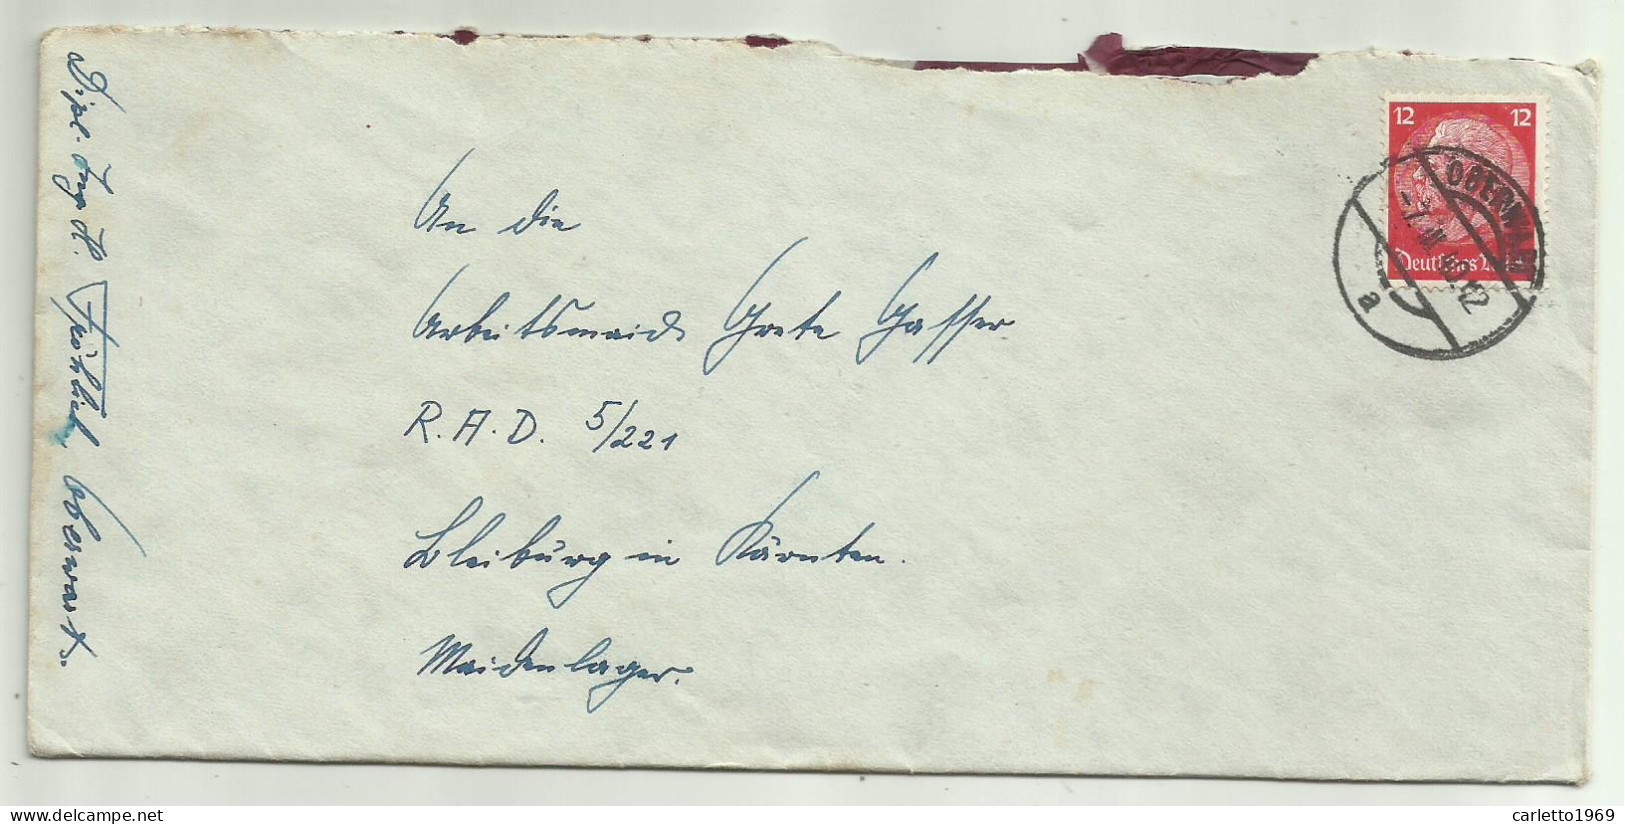 Dipl. Ing. H. Fröhlich, Oberwart.
An die
Arbeitsmaid Grete Gasser
R.A.D. 5/221
Bleiburg in Kärnten.
Maidenlager.
12 12
Deutsches
OBERWART
a
carletto1969